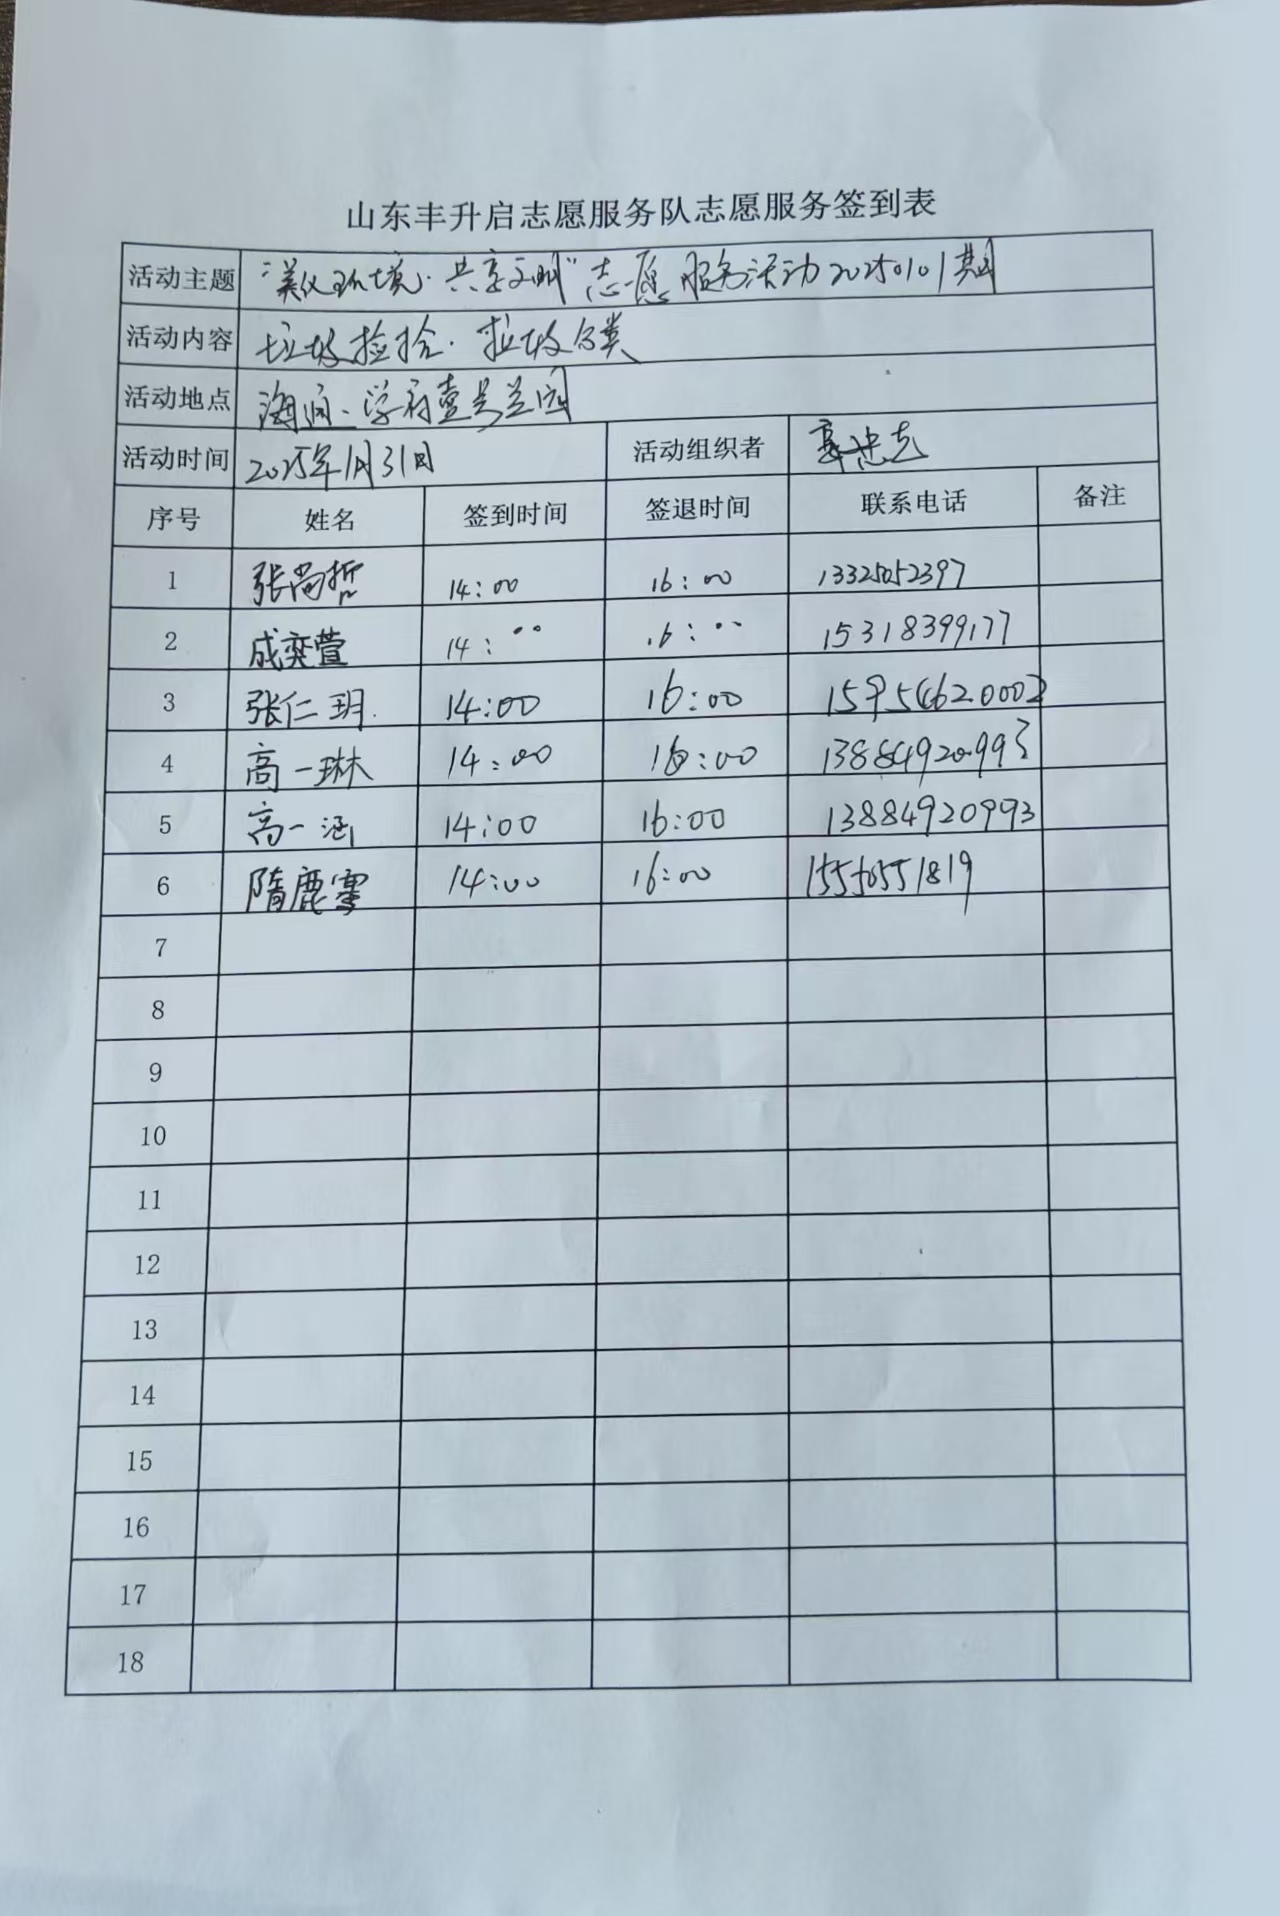 山东丰升启志愿服务队志愿服务签到表
活动主题 "美化环境·共享文明"志愿服务活动20250101期
活动内容 垃圾捡拾·垃圾分类
活动地点 海润·学府壹号兰园
活动时间 2025年1月31日 活动组织者 忠志
序号 姓名 签到时间 签退时间 联系电话 备注
1 张尚哲 14:00 16:00 13325052397
2 成奕萱 14:00 16:00 15318399177
3 张仁玥 14:00 16:00
4 高一琳 14:00 16:00 13884920993
5 高一涵 14:00 16:00 13884920993
6 隋鹿骞 14:00 16:00 15550551819
7
8
9
10
11
12
13
14
15
16
17
18